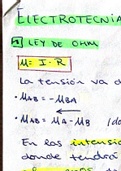 ELECTROTECNIA
LEY DE OHM
U = I · R
La tensión va d
• UAB = -UBA
• UAB = UA - UB (do
En las intensi
donde tendrá